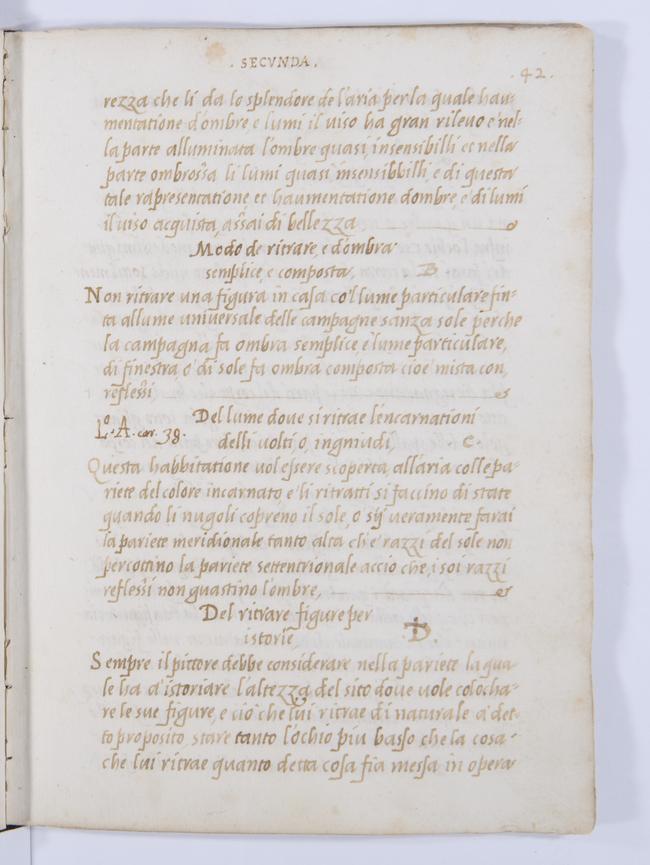 . SECVNDA .
. 42 .
rezza che li da lo splendore de l'aria per la quale hau-
mentatione d'ombre, e lumi il uiso ha gran rileuo e nel-
la parte alluminata l'ombre quasi insensibilli et nella
parte ombrossa li lumi quasi insensibbilli, e di questa
tale rapresentatione, et haumentatione dombre, e di lumi
il uiso acquista, assai di bellezza
Modo de ritrare, e d'ombra
semplice, e composta, B
Non ritrare una figura in casa col lume particulare fin-
ta allume uniuersale delle campagne sanza sole perche
la campagna fa ombra semplice, e lume particulare,
di finestra o di sole fa ombra composta cioe mista con,
reflessi
Del lume doue si ritrae lencarnationi
Lo. A. car. 38.
delli uolti, o, ingniudi, C
Questa habbitatione uol essere scoperta, all'aria colle pa-
riete del colore incarnato e li ritratti si faccino di state
quando li nugoli copreno il sole, o sij ueramente farai
la pariete meridionale tanto alta che razzi del sole non
percottino la pariete settentrionale accio che, i soi razzi
reflessi non guastino l'ombre,
Del ritrare figure per
istorie, D.
Sempre il pittore debbe considerare nella pariete la qua-
le ha a istoriare l'altezza del sito doue uole colocha-
re le sue figure, e cio che lui ritrae di naturale a det-
to proposito, stare tanto l'ochio piu basso che la cosa
che lui ritrae quanto detta cosa fia messa in opera